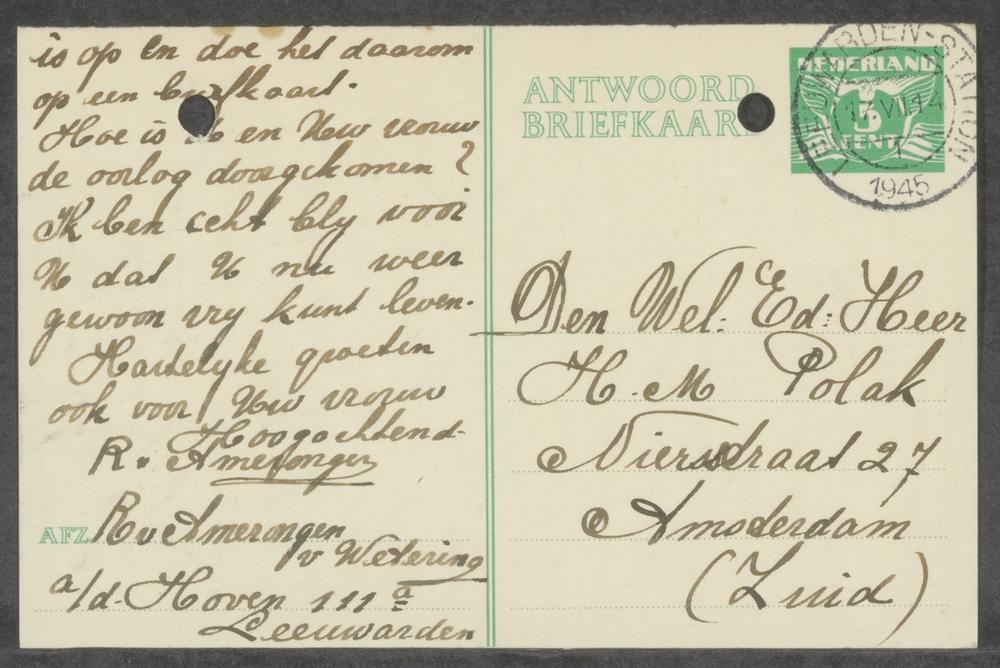 is op en doe het daarom
op een briefkaart.
Hoe is U en Uw vrouw
de oorlog doorgekomen?
Ik ben echt bly voor
U dat U nu weer
gewoon vry kunt leven.
Hartelyke groeten
ook voor Uw vrouw
Hoogachtend
R. v Amerongen
AFZ. R v Amerongen
v Wetering
a/d Hoven 111 a
Leeuwarden
ANTWOORD
BRIEFKAART
NEDERLAND
5
CENT
LEEUWARDEN-STATION
17.VII.14
1945
Den Wel. Ed: Heer
H. M Polak
Nierstraat 27
Amsterdam
(Zuid)